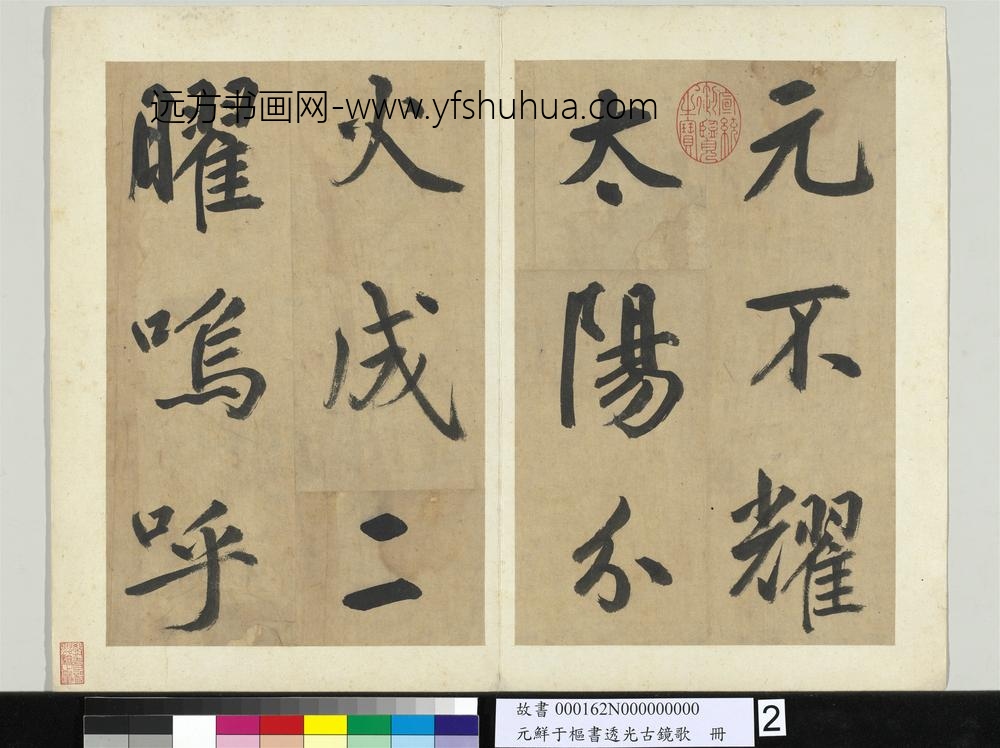 元不耀
太陽分
火成二
曜嗚呼
宣統御覽之寶
远方书画网-www.yfshuhua.com
故書 000162N000000000
元鮮于樞書透光古鏡歌 冊
2